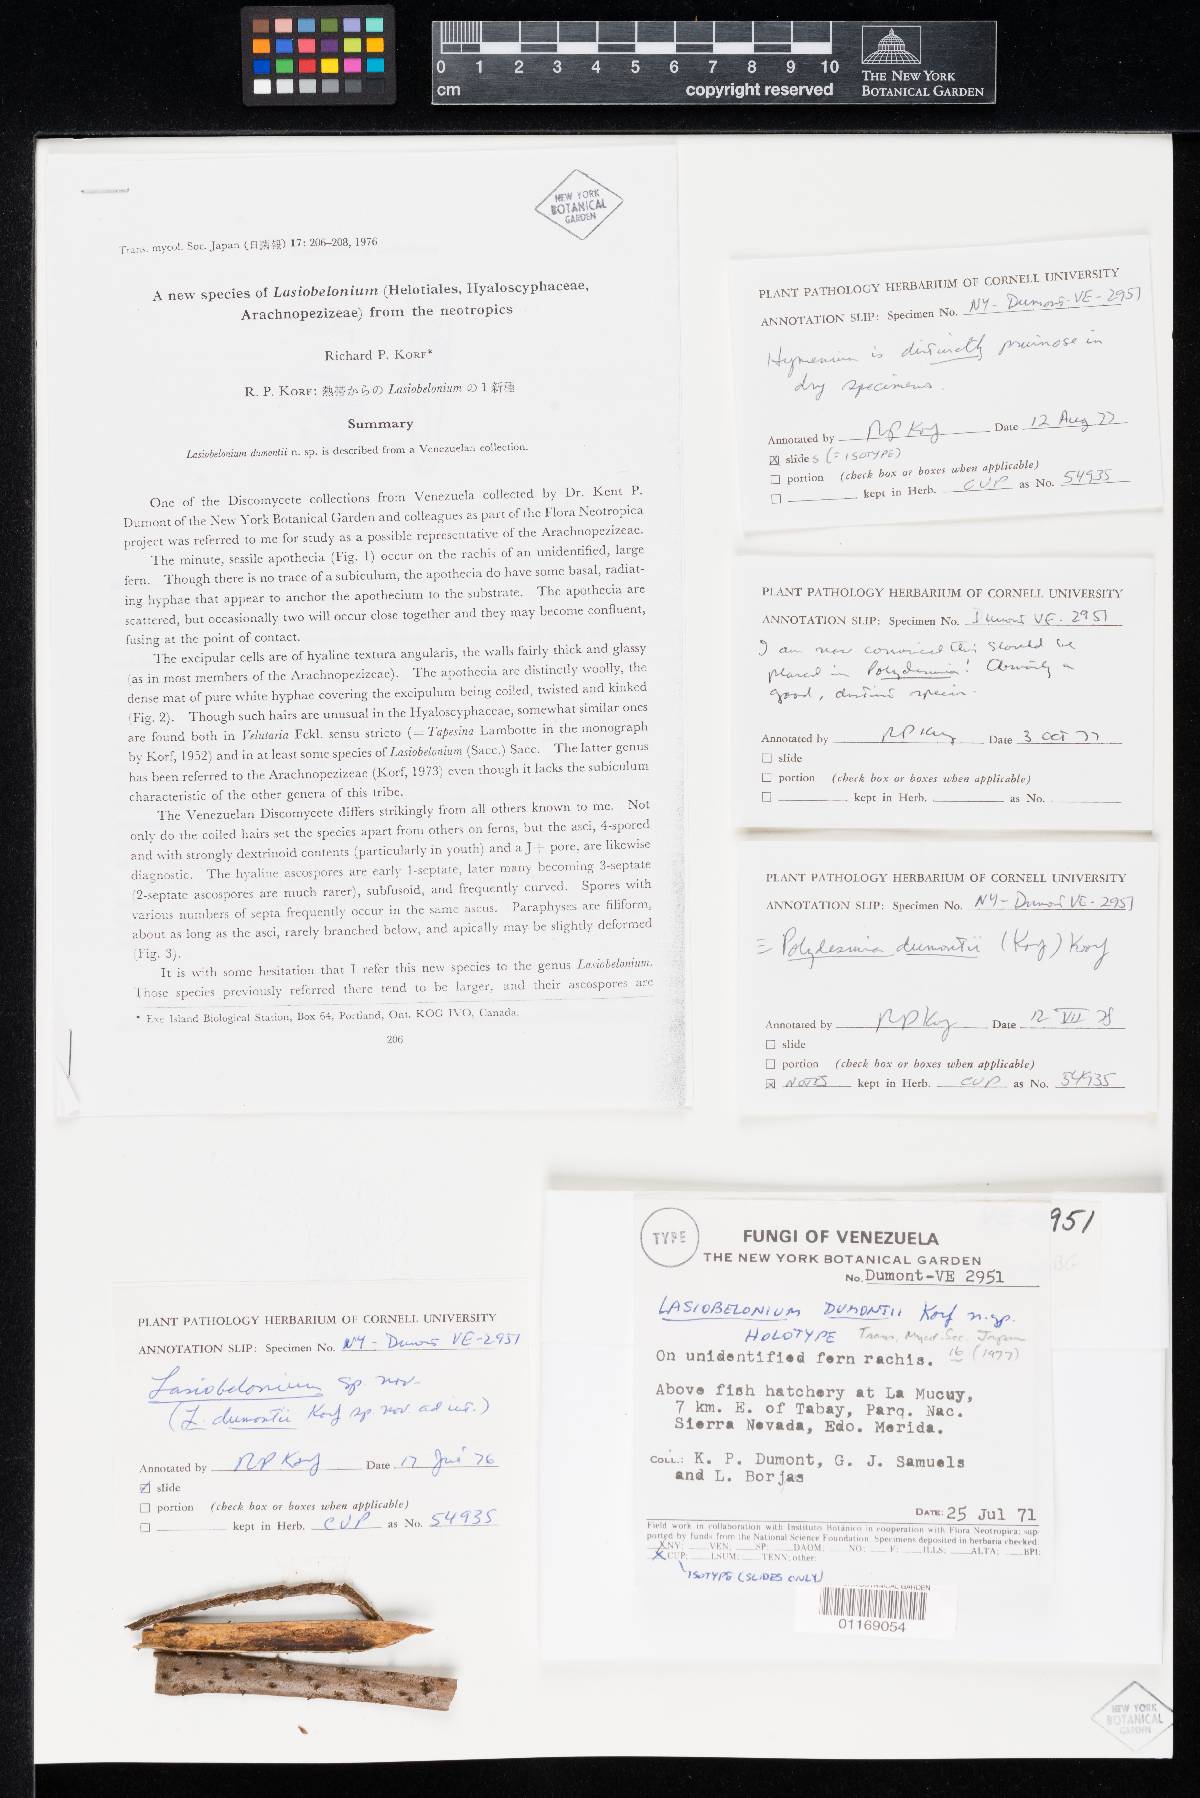 0 1 2 3 4 5 6 7 8 9 10
cm
copyright reserved
THE NEW YORK
BOTANICAL GARDEN
NEW YORK
BOTANICAL
GARDEN
Trans. mycol. Soc. Japan (日菌報) 17: 206–208, 1976
A new species of Lasiobelonium (Helotiales, Hyaloscyphaceae,
Arachnopezizeae) from the neotropics
Richard P. KORF*
R. P. KORF: 熱帯からの Lasiobelonium の 1 新種
Summary
Lasiobelonium dumontii n. sp. is described from a Venezuelan collection.
One of the Discomycete collections from Venezuela collected by Dr. Kent P.
Dumont of the New York Botanical Garden and colleagues as part of the Flora Neotropica
project was referred to me for study as a possible representative of the Arachnopezizeae.
The minute, sessile apothecia (Fig. 1) occur on the rachis of an unidentified, large
fern. Though there is no trace of a subiculum, the apothecia do have some basal, radiat-
ing hyphae that appear to anchor the apothecium to the substrate. The apothecia are
scattered, but occasionally two will occur close together and they may become confluent,
fusing at the point of contact.
The excipular cells are of hyaline textura angularis, the walls fairly thick and glassy
(as in most members of the Arachnopezizeae). The apothecia are distinctly woolly, the
dense mat of pure white hyphae covering the excipulum being coiled, twisted and kinked
(Fig. 2). Though such hairs are unusual in the Hyaloscyphaceae, somewhat similar ones
are found both in Velutaria Fckl. sensu stricto (= Tapesina Lambotte in the monograph
by Korf, 1952) and in at least some species of Lasiobelonium (Sacc.) Sacc. The latter genus
has been referred to the Arachnopezizeae (Korf, 1973) even though it lacks the subiculum
characteristic of the other genera of this tribe.
The Venezuelan Discomycete differs strikingly from all others known to me. Not
only do the coiled hairs set the species apart from others on ferns, but the asci, 4-spored
and with strongly dextrinoid contents (particularly in youth) and a J+ pore, are likewise
diagnostic. The hyaline ascospores are early 1-septate, later many becoming 3-septate
(2-septate ascospores are much rarer), subfusoid, and frequently curved. Spores with
various numbers of septa frequently occur in the same ascus. Paraphyses are filiform,
about as long as the asci, rarely branched below, and apically may be slightly deformed
(Fig. 3).
It is with some hesitation that I refer this new species to the genus Lasiobelonium.
Those species previously referred there tend to be larger, and their ascospores are
* Exe Island Biological Station, Box 64, Portland, Ont. KOG IVO, Canada.
206
PLANT PATHOLOGY HERBARIUM OF CORNELL UNIVERSITY
ANNOTATION SLIP: Specimen No. NY - Dumont-VE-2951
Hymenium is distinctly pruinose in
dry specimens.
Annotated by RP Korf Date 12 Aug 77
☒ slides (= ISOTYPE)
☐ portion (check box or boxes when applicable)
☐ kept in Herb. CUP as No. 54935
PLANT PATHOLOGY HERBARIUM OF CORNELL UNIVERSITY
ANNOTATION SLIP: Specimen No. Dumont VE-2951
I am now convinced this should be
placed in Polydesmia! Obviously a
good, distinct species.
Annotated by RP Korf Date 3 Oct 77
☐ slide
☐ portion (check box or boxes when applicable)
☐ kept in Herb. as No.
PLANT PATHOLOGY HERBARIUM OF CORNELL UNIVERSITY
ANNOTATION SLIP: Specimen No. NY - Dumont VE-2951
≡ Polydesmia dumontii (Korf) Korf
Annotated by RP Korf Date 12 VII 78
☐ slide
☐ portion (check box or boxes when applicable)
☒ NOTES kept in Herb. CUP as No. 54935
PLANT PATHOLOGY HERBARIUM OF CORNELL UNIVERSITY
ANNOTATION SLIP: Specimen No. NY - Dumont VE-2951
Lasiobelonium sp. nov.
(L. dumontii Korf sp nov ad int.)
Annotated by RP Korf Date 17 76
☑ slide
☐ portion (check box or boxes when applicable)
☐ kept in Herb. CUP as No. 54935
951
TYPE
FUNGI OF VENEZUELA
THE NEW YORK BOTANICAL GARDEN
No. Dumont-VE 2951
LASIOBELONIUM DUMONTII Korf n.sp.
HOLOTYPE Trans. Mycol. Soc. Japan
16 (1977)
On unidentified fern rachis.
Above fish hatchery at La Mucuy,
7 km. E. of Tabay, Parq. Nac.
Sierra Nevada, Edo. Merida.
COLL.: K. P. Dumont, G. J. Samuels
and L. Borjas
DATE: 25 Jul 71
Field work in collaboration with Instituto Botánico in cooperation with Flora Neotropica; sup-
ported by funds from the National Science Foundation. Specimens deposited in herbaria checked.
X NY; VEN; SP; DAOM; NO; F; ILLS; ALTA; BPI;
X CUP; LSUM; TENN; other:
ISOTYPE (SLIDES ONLY)
01169054
NEW YORK
BOTANICAL
GARDEN